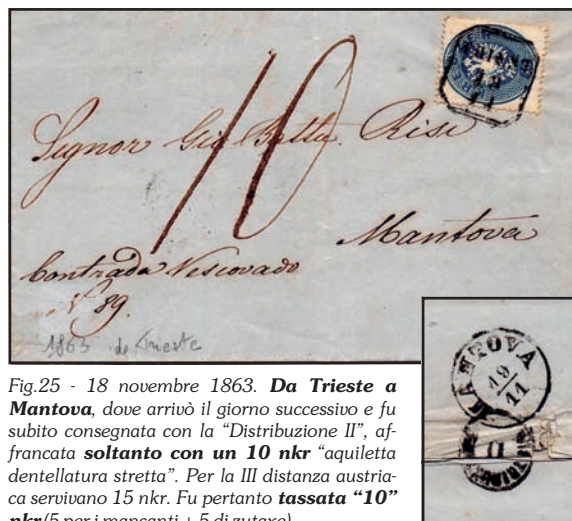 10
Signor Gio Batta. Risi
Mantova
Contrada Vescovado
N° 89.
1863 da Trieste
MANTOVA
19
11
DISTRIBUZ
II
Fig.25 - 18 novembre 1863. Da Trieste a
Mantova, dove arrivò il giorno successivo e fu
subito consegnata con la “Distribuzione II”, af-
francata soltanto con un 10 nkr “aquiletta
dentellatura stretta”. Per la III distanza austria-
ca servivano 15 nkr. Fu pertanto tassata “10”
nkr (5 per i mancanti + 5 di sutaxe)